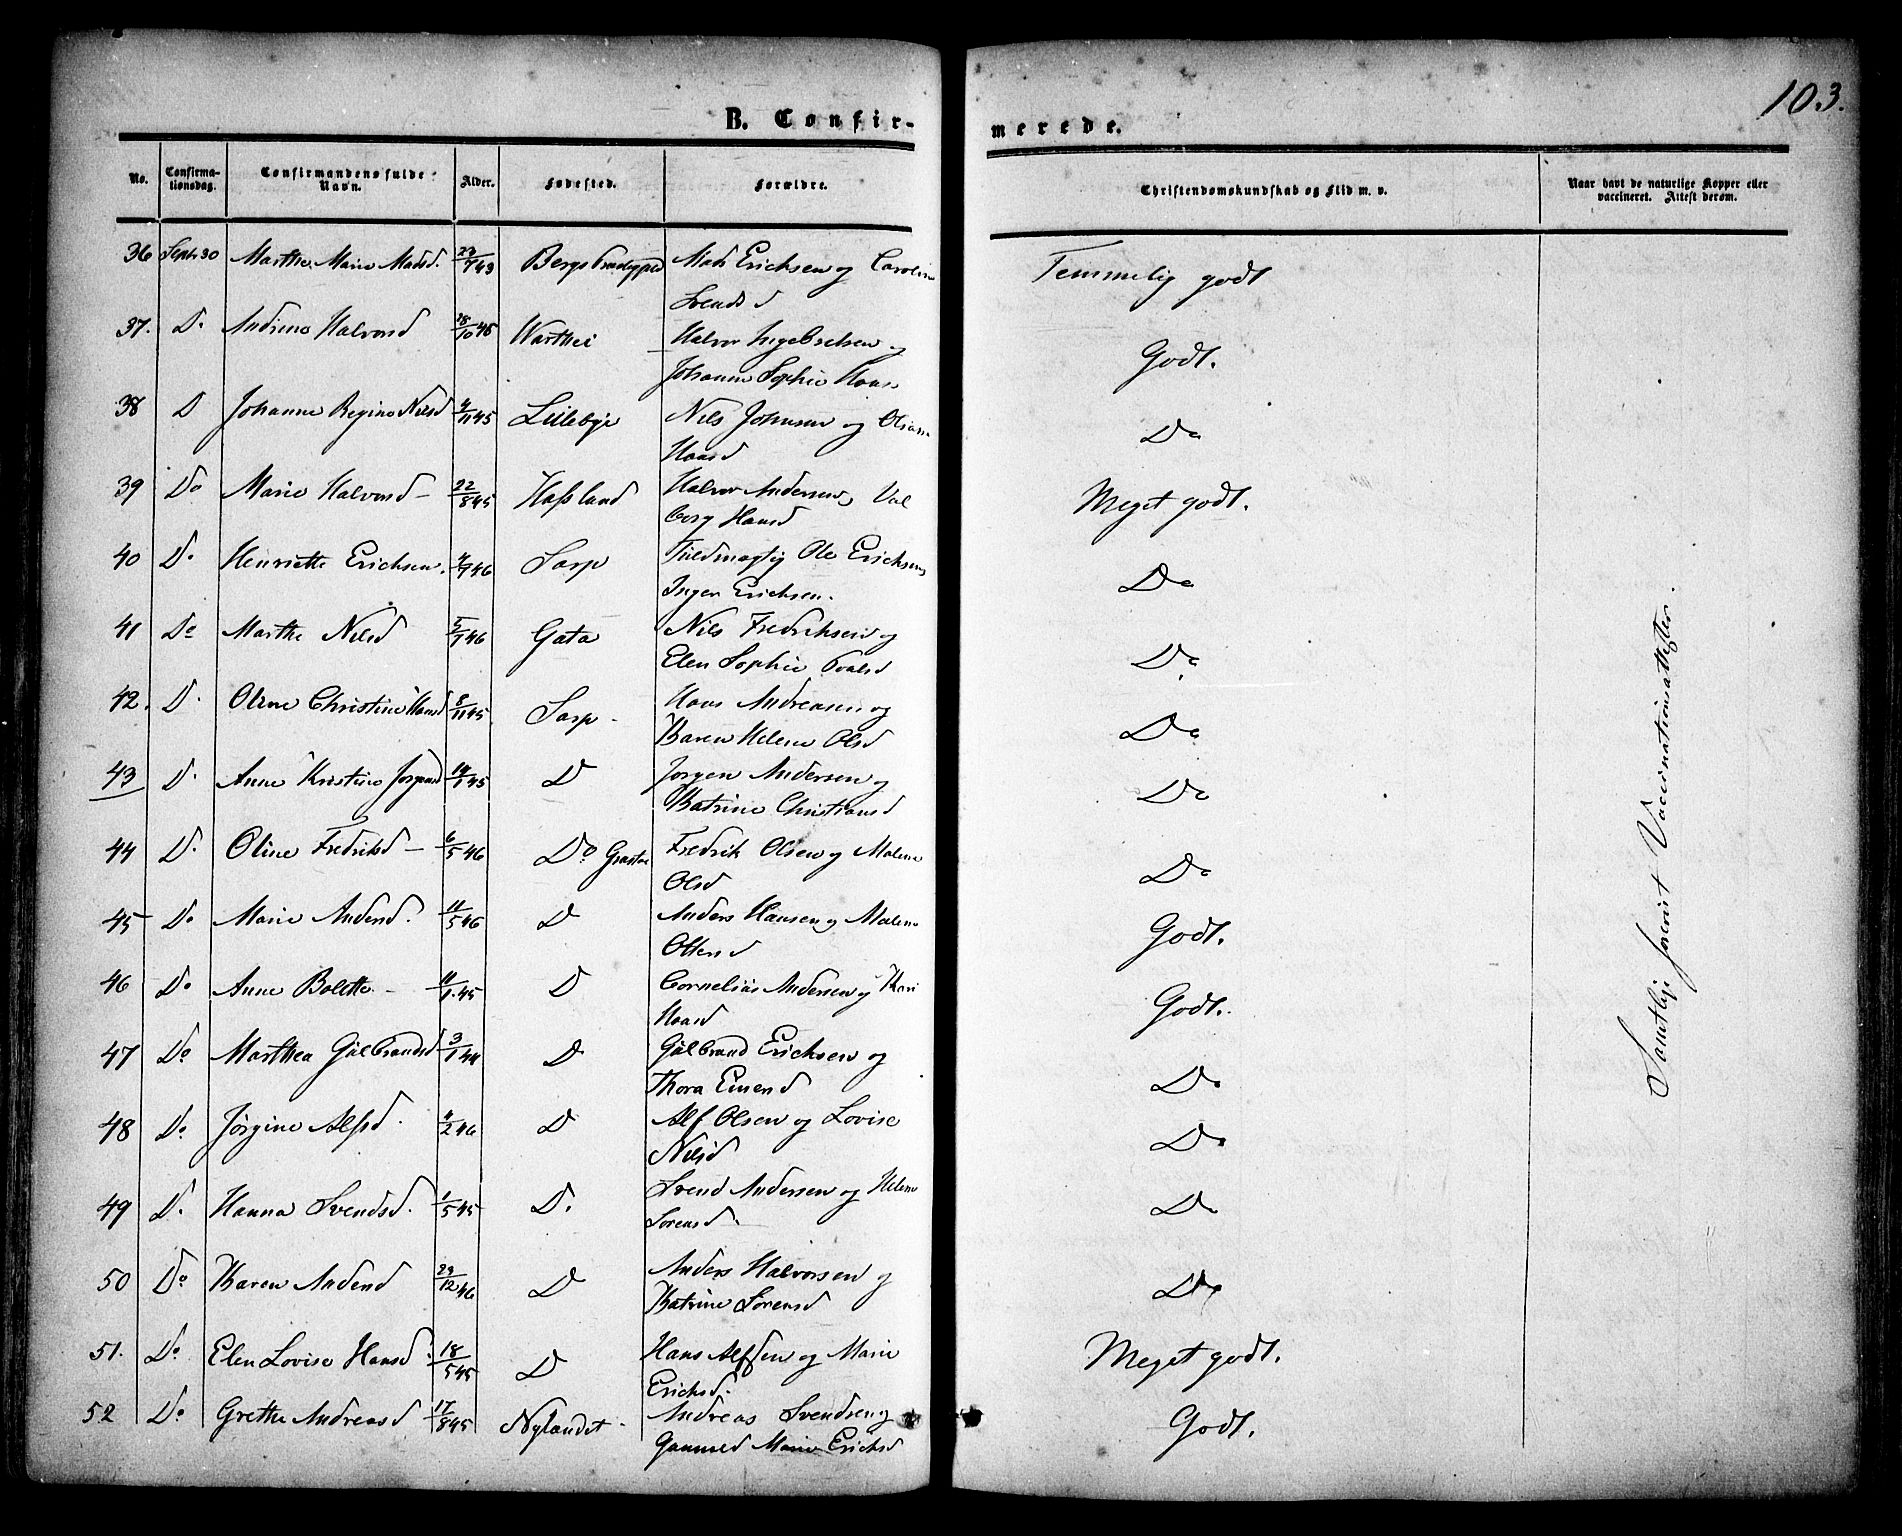 103.
B. Confir-
merede.
No.
Confirma-
tionsdag.
Confirmandens fulde
Navn.
Alder.
Fødested.
Forældre.
Christendomskundskab og Flid m. v.
Naar havt de naturlige Kopper eller
vaccineret. Attest derom.
36 Sept. 30 Marthe Marie Madsd. Mads Erichsen og Caroline
Svendsd
Temmelig godt
37. D. Halvorsd 28/10 45 Halvor Ingebretsen og
Johanne Sophie Hans
Godt.
38 D Johanne Regine Nilsd 4/11 45 Lillebye Nils Johnsen og
Hansd
Do
39 Do Marie Halvorsd - 22/8 45 Hafslund Halvor Andersen, Val
borg Hansd
Meget godt.
40 D. Henriette Erichsen. 4/7 46 Sarp Fuldmægtig Ole Erichsen
Inger Erichsen.
Do
41 Do Marthe Nilsd 5/7 46 Gata Nils Fredriksen og
Elen Sophie
Do
42. D. Oline Christine Hansd 8/11 45. Sarp - Hans Andreasen og
Karen Helene Olsd
Do
43 D. Anne Kristine Jørgensd 45 D Jørgen Andersen og
Katrine Christiansd
Do
44 D. Oline Fredriksd - 6/5 46 Do Fredrik Olsen og Malene
Olsd
Do
45 Do Marie Andersd. 11/5 46 D Anders Hansen og Malene
Ottersd
Godt.
46 Do Anne Bolette. - 11/1 45 D Cornelius Andersen og Kari
Hansd
Godt.
47 Do Marthea Gulbrandsd 3/1 44 D Gulbrand Erichsen og
Thora Einersd
Do
48 Do Jørgine Alfsd. 4/2 46 D Alf Olsen og Lovise
Nilsd
Do
49 D. Hanna Svendsd. 1/5 45 D. Svend Andersen og Helene
Sørensd.
Do
50 Do Karen Andersd 29/12 46 D Anders Halvorsen og
Katrine Sørensd
Do
51. Do Elen Lovise Hansd. 18/5 45 D Hans Alfsen og Marie
Erichsd.
Meget godt.
52 Do Grethe Andreasd 17/8 45 Nylandet - Andreas Svendsen og
Marie Erichsd
Godt.
Samtlige forevist Vaccinationsattester.